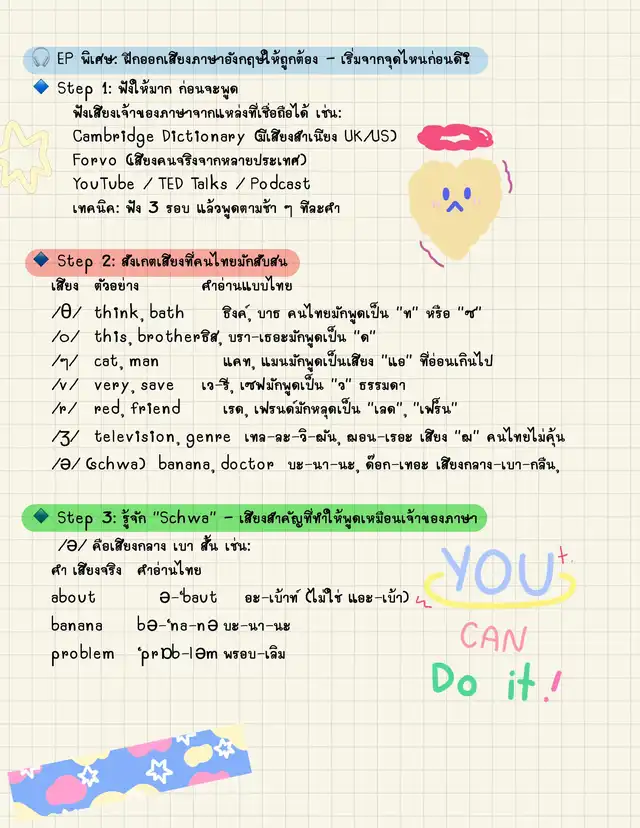 🎧 EP พิเศษ: ฝึกออกเสียงภาษาอังกฤษให้ถูกต้อง – เริ่มจากจุดไหนก่อนดี?
🔷 Step 1: ฟังให้มาก ก่อนจะพูด
ฟังเสียงเจ้าของภาษาจากแหล่งที่เชื่อถือได้ เช่น:
Cambridge Dictionary (มีเสียงสำเนียง UK/US)
Forvo (เสียงคนจริงจากหลายประเทศ)
YouTube / TED Talks / Podcast
เทคนิค: ฟัง 3 รอบ แล้วพูดตามช้า ๆ ทีละคำ
🔷 Step 2: สังเกตเสียงที่คนไทยมักสับสน
เสียง ตัวอย่าง คำอ่านแบบไทย
/θ/ think, bath ธิงค์, บาธ คนไทยมักพูดเป็น "ท" หรือ "ซ"
/o/ this, brotherธิส, บรา-เธอะมักพูดเป็น "ด"
/ๆ/ cat, man แคท, แมนมักพูดเป็นเสียง "แอ" ที่อ่อนเกินไป
/v/ very, save เว-รี, เซฟมักพูดเป็น "ว" ธรรมดา
/r/ red, friend เรด, เฟรนด์มักหลุดเป็น "เลด", "เฟร็น"
/ʒ/ television, genre เทล-ละ-วิ-ฌัน, ฌอน-เรอะ เสียง "ฌ" คนไทยไม่คุ้น
/ə/ (schwa) banana, doctor บะ-นา-นะ, ด๊อก-เทอะ เสียงกลาง-เบา-กลืน,
🔷 Step 3: รู้จัก "Schwa" – เสียงสำคัญที่ทำให้พูดเหมือนเจ้าของภาษา
/ə/ คือเสียงกลาง เบา สั้น เช่น:
คำ เสียงจริง คำอ่านไทย
about ə-ˈbaut อะ-เบ้าท์ (ไม่ใช่ แอะ-เบ้า)
banana bə-ˈna-nə บะ-นา-นะ
problem ˈprɒb-ləm พรอบ-เลิม
YOU
CAN
Do it.!